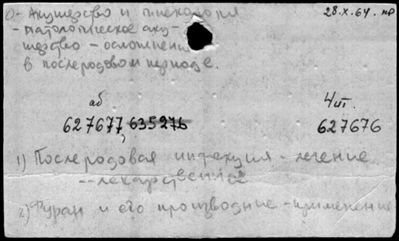 0- Акушерство и гинекология 28.X.64. нр
- патологическое аку-
шерство - осложнения
в послеродовом периоде.
аб 4шт.
627677, 635276 627676
1) Послеродовая инфекция - лечение
-- лекарственное
2) Фуран и его производные - применение